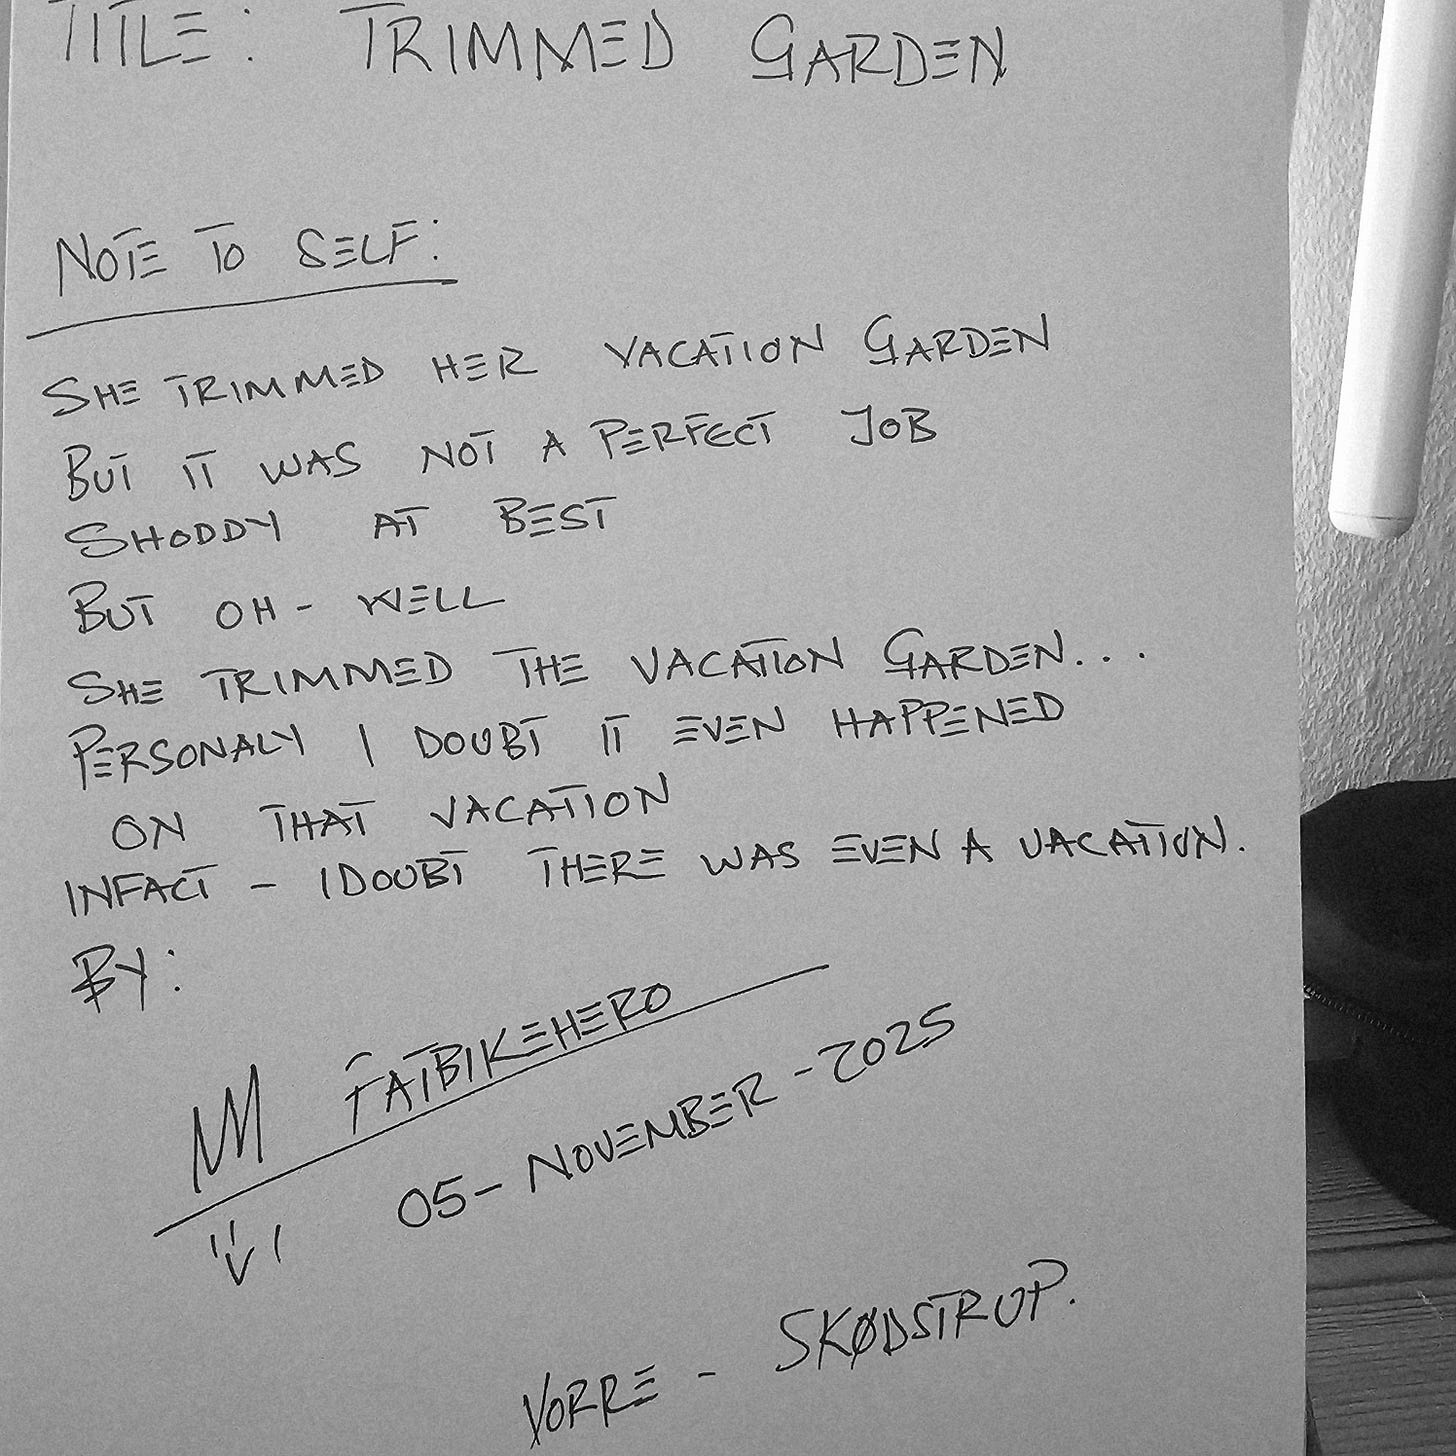 TITLE: TRIMMED GARDEN
NOTE TO SELF:
SHE TRIMMED HER VACATION GARDEN
BUT IT WAS NOT A PERFECT JOB
SHODDY AT BEST
BUT OH - WELL
SHE TRIMMED THE VACATION GARDEN...
PERSONALY I DOUBT IT EVEN HAPPENED
ON THAT VACATION
INFACT - I DOUBT THERE WAS EVEN A VACATION.
BY:
FATBIKEHERO
05-NOVEMBER-2025
VORRE - SKØDSTRUP.